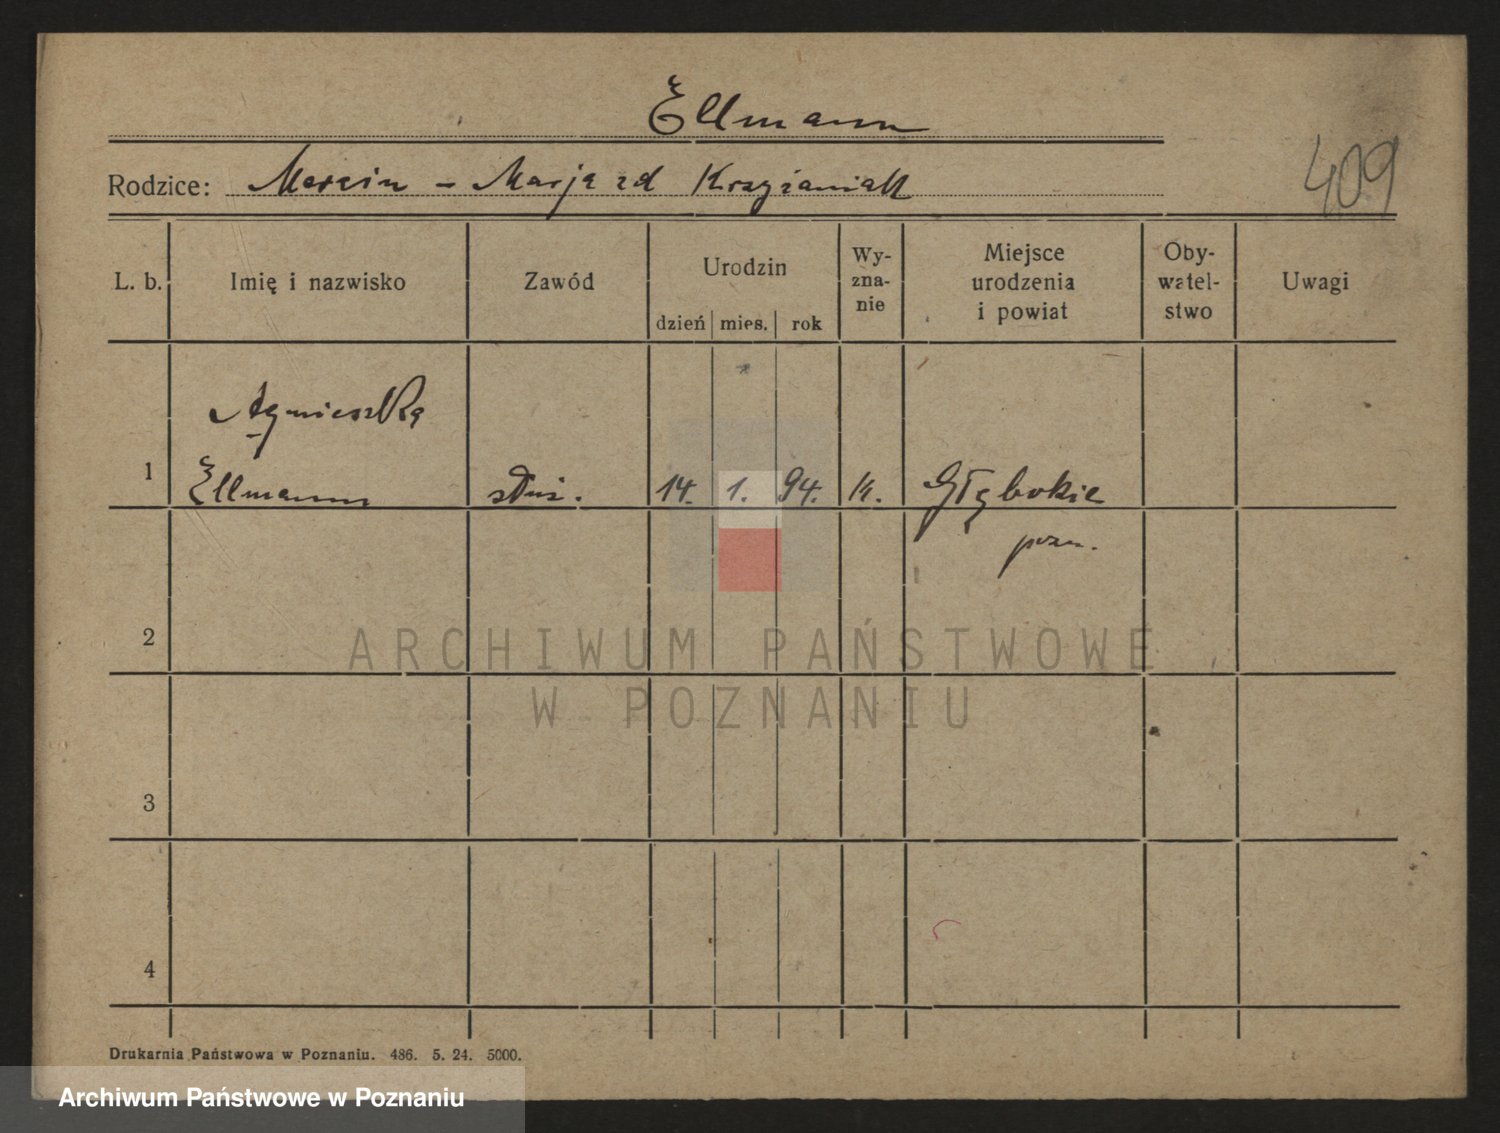 Ellmann
409
Rodzice: Marcin - Marja zd Krzyżaniak
L. b. Imię i nazwisko Zawód Urodzin dzień mies. rok Wy-zna-nie Miejsce urodzenia i powiat Oby-watel-stwo Uwagi
Agnieszka
1 Ellmann służ. 14. 1. 94. k. Głębokie
pozn.
2
ARCHIWUM PAŃSTWOWE
W POZNANIU
3
4
Drukarnia Państwowa w Poznaniu. 486. 5. 24. 5000.
Archiwum Państwowe w Poznaniu